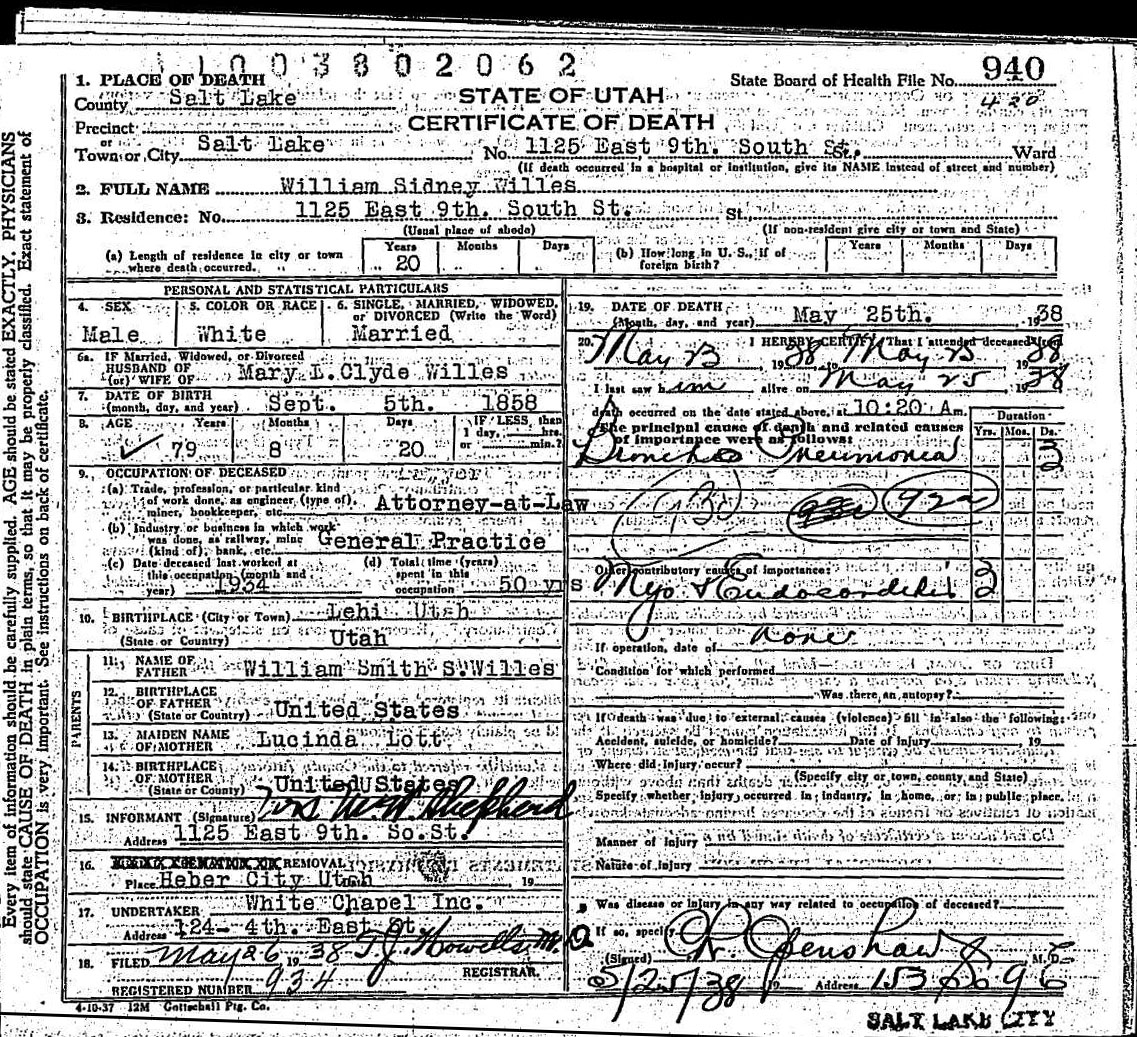 1 1 0 0 3 8 0 2 0 6 2
State Board of Health File No. 940
420
STATE OF UTAH
CERTIFICATE OF DEATH
1. PLACE OF DEATH
County Salt Lake
Precinct
or
Town or City Salt Lake No. 1125 East 9th. South St. St., Ward
(If death occurred in a hospital or institution, give its NAME instead of street and number)
2. FULL NAME William Sidney Willes
3. Residence: No. 1125 East 9th. South St. St.
(Usual place of abode) (If non-resident give city or town and State)
(a) Length of residence in city or town where death occurred. Years 20 Months Days
(b) How long in U. S., if of foreign birth? Years Months Days
PERSONAL AND STATISTICAL PARTICULARS
4. SEX Male
5. COLOR OR RACE White
6. SINGLE, MARRIED, WIDOWED, or DIVORCED (Write the Word) Married
6a. IF Married, Widowed, or Divorced
HUSBAND OF
(or) WIFE OF Mary L.Clyde Willes
7. DATE OF BIRTH
(month, day, and year) Sept. 5th. 1858
8. AGE Years 79 Months 8 Days 20 IF LESS, than 1 day, hrs. or min.?
9. OCCUPATION OF DECEASED
(a) Trade, profession, or particular kind of work done, as engineer (type of), miner, bookkeeper, etc. Attorney-at-Law
(b) Industry or business in which work was done, as railway, mine (kind of), bank, etc. General Practice
(c) Date deceased last worked at this occupation (month and year) 1934
(d) Total time (years) spent in this occupation 50 yrs
10. BIRTHPLACE (City or Town) Lehi Utah
(State or Country) Utah
PARENTS
11. NAME OF FATHER William Smith S.Willes
12. BIRTHPLACE OF FATHER
(State or Country) United States
13. MAIDEN NAME OF MOTHER Lucinda Lott
14. BIRTHPLACE OF MOTHER
(State or County) United States
15. INFORMANT (Signature) Mrs W.W. Shepherd
Address 1125 East 9th. So.St.
16. REMOVAL
Place Heber City Utah , 19
17. UNDERTAKER White Chapel Inc.
Address 124- 4th. East St.
18. FILED May 26 1938 T.J. Howells M.D
REGISTRAR.
REGISTERED NUMBER 934
4-10-37 12M Gottschall Ptg. Co.
19. DATE OF DEATH
(Month, day, and year) May 25th. 1938
20. I HEREBY CERTIFY That I attended deceased from
May 23, 1938 May 25, 1938
I last saw him alive on May 25 1938
death occurred on the date stated above, at 10:20 A m.
The principal cause of death and related causes of importance were as follows:
Duration
Yrs. Mos. Ds.
Broncho Pneumonia 3
92a
Other contributory causes of importance:
Myo & Endocarditis 3
If operation, date of none
Condition for which performed
Was there an autopsy?
If death was due to external causes (violence) fill in also the following:
Accident, suicide, or homicide? Date of injury , 19
Where did injury occur?
(Specify city or town, county, and State)
Specify whether injury occurred in industry, in home, or in public place.
Manner of injury
Nature of injury
Was disease or injury in any way related to occupation of deceased?
If so, specify
(Signed) Openshaw M. D.
5/25/38 19 Address 153 So 9 E
SALT LAKE CITY
Every item of information should be carefully supplied. AGE should be stated EXACTLY. PHYSICIANS
should state CAUSE OF DEATH in plain terms, so that it may be properly classified. Exact statement of
OCCUPATION is very important. See instructions on back of certificate.